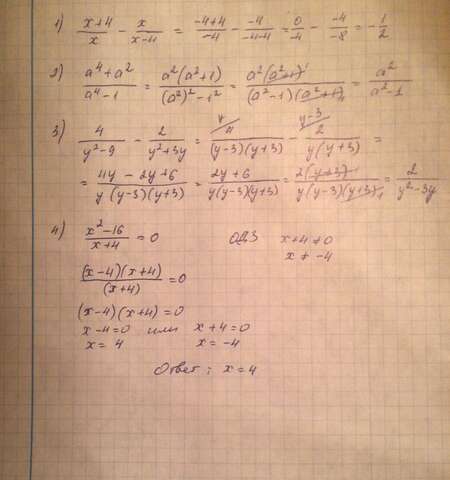 1) (x+4)/x - x/(x-4) = (-4+4)/(-4) - (-4)/(-4-4) = 0/(-4) - (-4)/(-8) = -1/2
2) (a⁴+a²)/(a⁴-1) = a²(a²+1)/((a²)²-1²) = a²(a²+1)¹/((a²-1)(a²+1)₁) = a²/(a²-1)
3) 4/(y²-9) - 2/(y²+3y) = ʸ/4/((y-3)(y+3)) - ʸ⁻³/2/(y(y+3)) =
= (4y-2y+6)/(y(y-3)(y+3)) = (2y+6)/(y(y-3)(y+3)) = 2(y+3)¹/(y(y-3)(y+3)₁) = 2/(y²-3y)
4) (x²-16)/(x+4) = 0 ОДЗ x+4≠0
x ≠ -4
(x-4)(x+4)/(x+4) = 0
(x-4)(x+4)=0
x-4=0 или x+4=0
x = 4 x = -4
Ответ: x=4